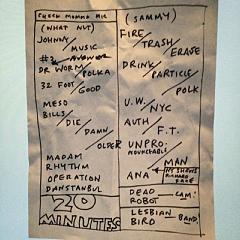 CHECK MOMMA MIC
(WHAT NUT)
JOHNNY/
MUSIC
#3 ANSWER
DR WORM/
POLKA
32 FOOT/
GOOD
MESO
BILLS/
DIE/
DAMN
OLDER
MADAM
RHYTHM
OPERATION
DANSTANBUL
20
MINUTES
(SAMMY)
FIRE/
TRASH/
ERASE
DRINK/
PARTICLE/
POLK
U.W./
NYC
AUTH/
F.T.
UNPRO-
NOUNCEABLE/
MAN
ANA
NY SHOWS
RICHARD
DEAD
ROBOT
CAM.
LESBIAN
BIRD
BAND